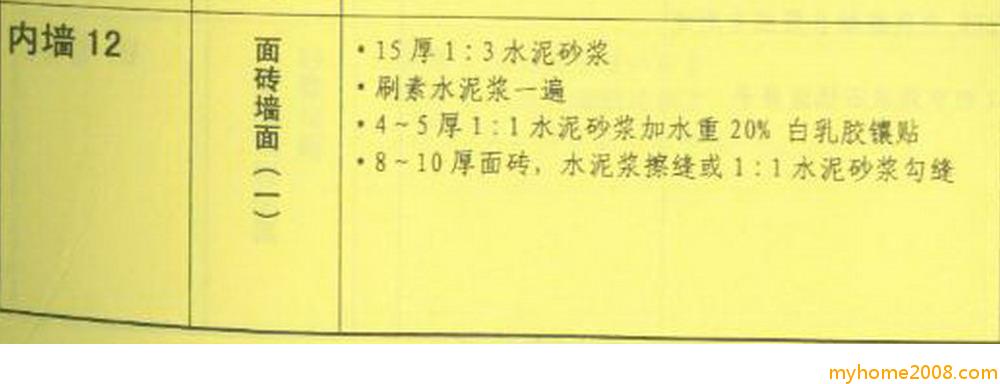 内墙 12
面砖墙面(一)
·15 厚 1:3 水泥砂浆
·刷素水泥浆一遍
·4~5 厚 1:1 水泥砂浆加水重 20% 白乳胶镶贴
·8~10 厚面砖，水泥浆擦缝或 1:1 水泥砂浆勾缝
myhome2008.com